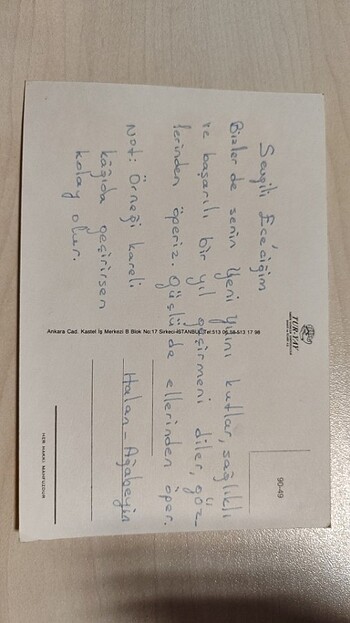 Sevgili Ece'ciğim
Bizler de senin Yeni Yılını kutlar, sağlıklı
ve başarılı bir yıl geçirmeni diler, göz-
lerinden öperiz. Güşlü de ellerinden öper.
Halan - Ağabeyin
Not: Örneği kareli
kâğıda geçirirsen
kolay olur.
TUR-YAY
90-49
Ankara Cad. Kastel İş Merkezi B Blok No:17 Sirkeci-İSTANBUL Tel:513 06 58-513 17 98
HER HAKKI MAHFUZDUR